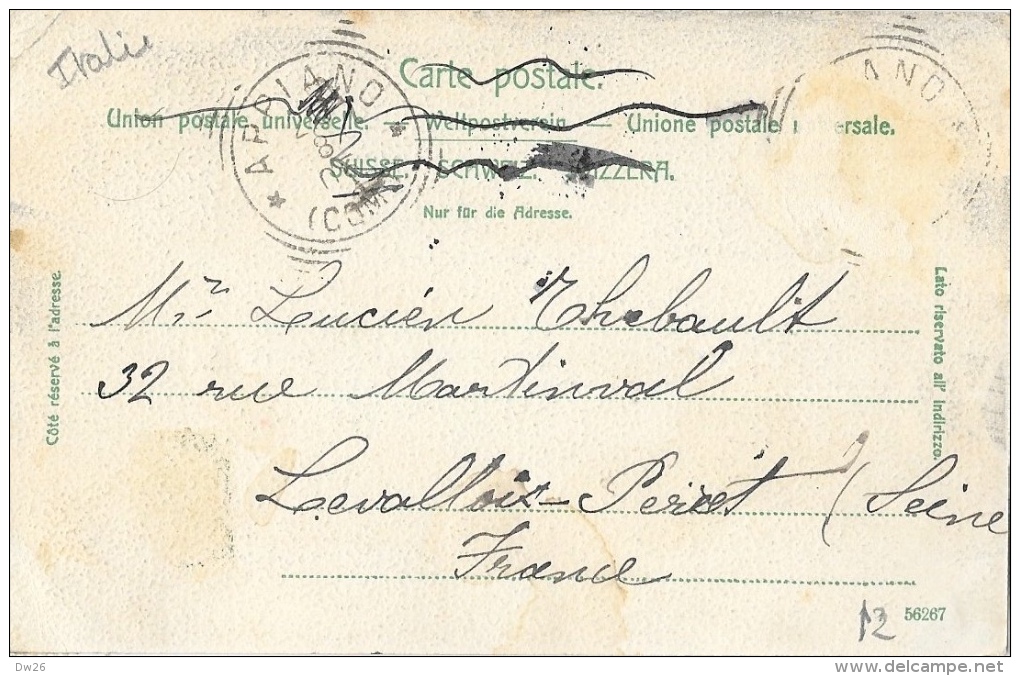 Italie
Carte postale.
Union postale universelle. — Weltpostverein. — Unione postale universale.
SUISSE. SCHWEIZ. SVIZZERA.
Nur für die Adresse.
★ APPIANO ★
(COMO)
ANO
Côté réservé à l'adresse.
Lato riservato all' indirizzo.
Mr Lucien Thebault
32 rue Martinval
Levallois-Perret (Seine
France
12
56267
Dw26
www.delcampe.net